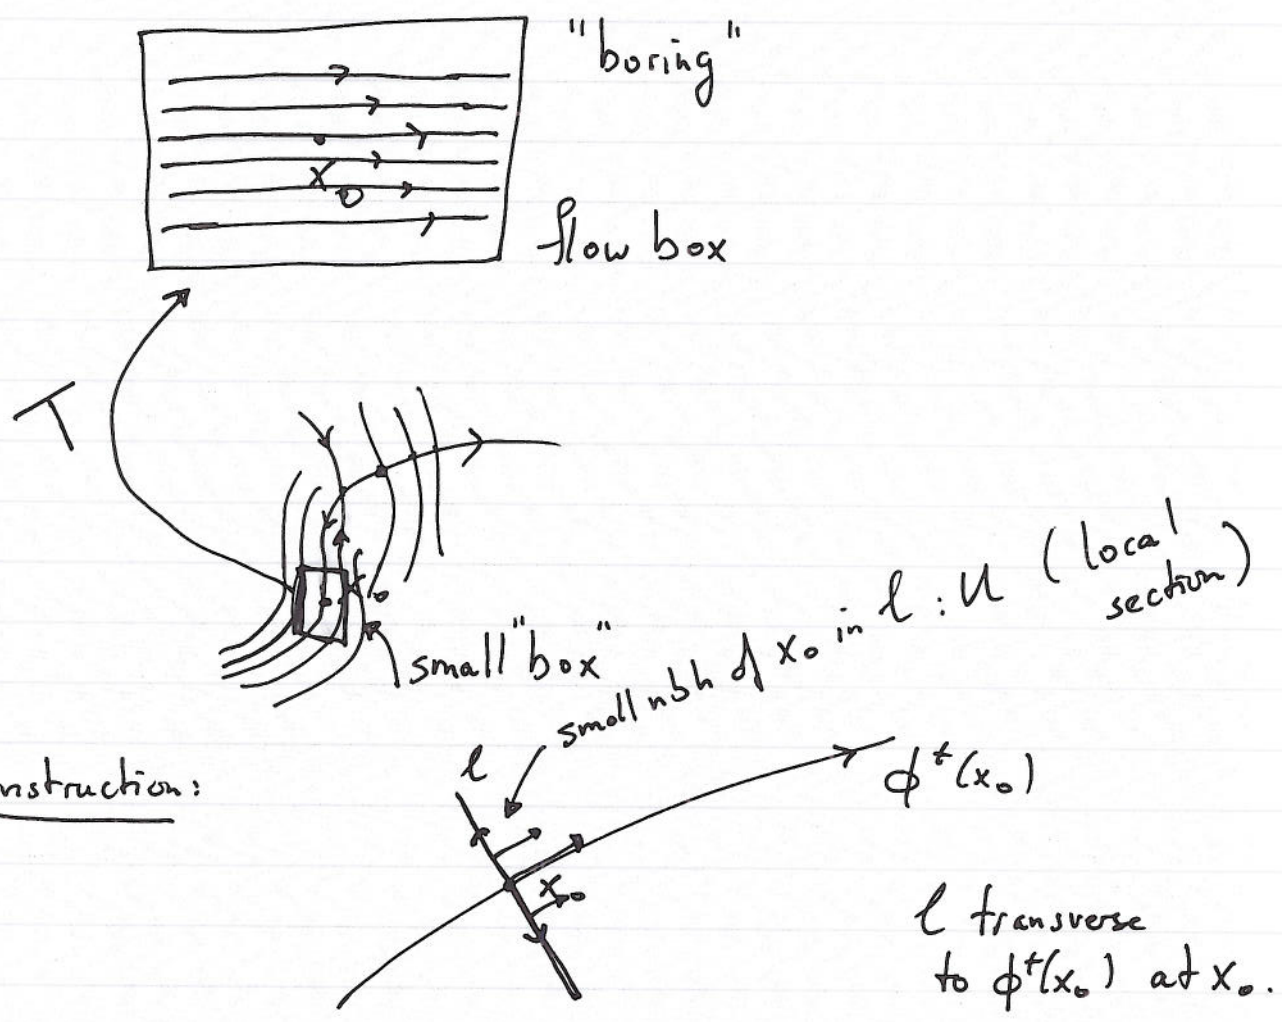 "boring"
x₀
flow box
T
x₀
small "box"
small nbh of x₀ in ℓ : U (local section)
nstruction:
ℓ
ϕᵗ(x₀)
x₀
ℓ transverse
to ϕᵗ(x₀) at x₀.